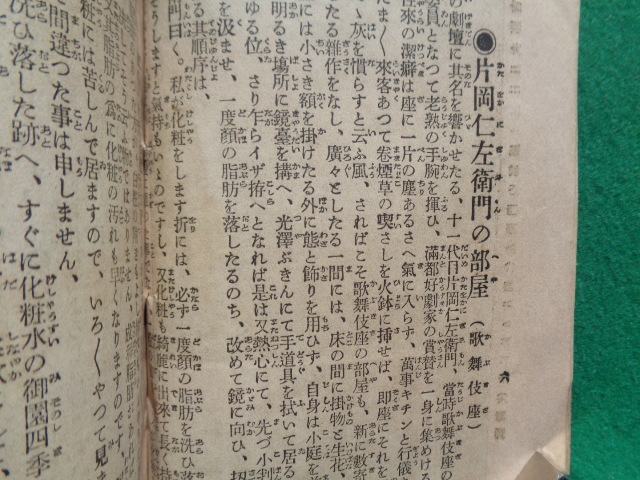 ●片岡仁左衛門の部屋（歌舞伎座）
の劇壇に其名を響かせたる、十一代目片岡仁左衛門、當時歌舞伎座の
委員となつて老熟の手腕を揮ひ、滿都好劇家の賞賛を一身に集める
性來の潔癖は座に一片の塵あるさへ氣に入らず、萬事キチンと行儀
たまく來客あつて卷煙草の喫さしを火鉢に挿せば、即座にそれを
灰を慣らすと云ふ風、さればこそ歌舞伎座の部屋も、新に數寄
たる雜作をなし、廣々としたる一間には、床の間に掛物と生花、
には小さき額を掛けたる外に態と飾りを用ひず、自身は小庭を
明るき場所に鏡臺を搆へ、光澤ぶきんにて手道具を拭いて居る
ゆる位、さり乍らイザ拵へとなれば是は又熱心にて、先づ小判
を汲ませ、一度顏の脂肪を落したるのち、改めて鏡に向ひ、
る其順序は、
門曰く。私が化粧をします折には、必ず一度顏の脂肪を洗ひ落
うしますと氣持もいゝのですし、又化粧も綺麗に出來て長く持
其脂肪の爲に化粧の汚れも早くなりますのです、
化粧には苦しんで居ますので、いろくやつて見ま
間違つた事は申しません、
洗ひ落した跡へ、すぐに化粧水の御園四季